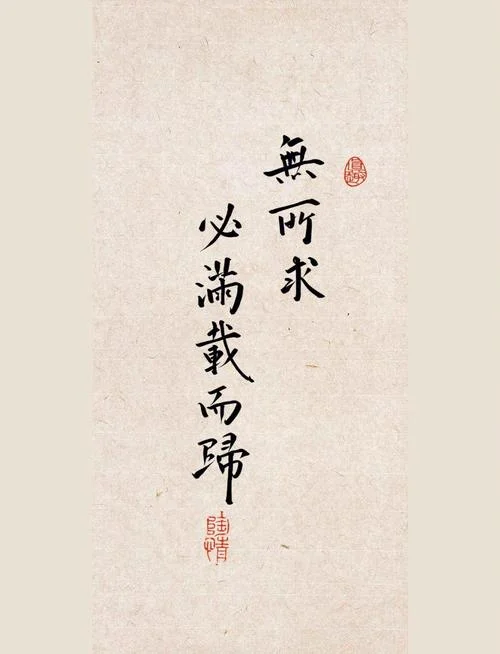 無所求
必滿載而歸
陶情